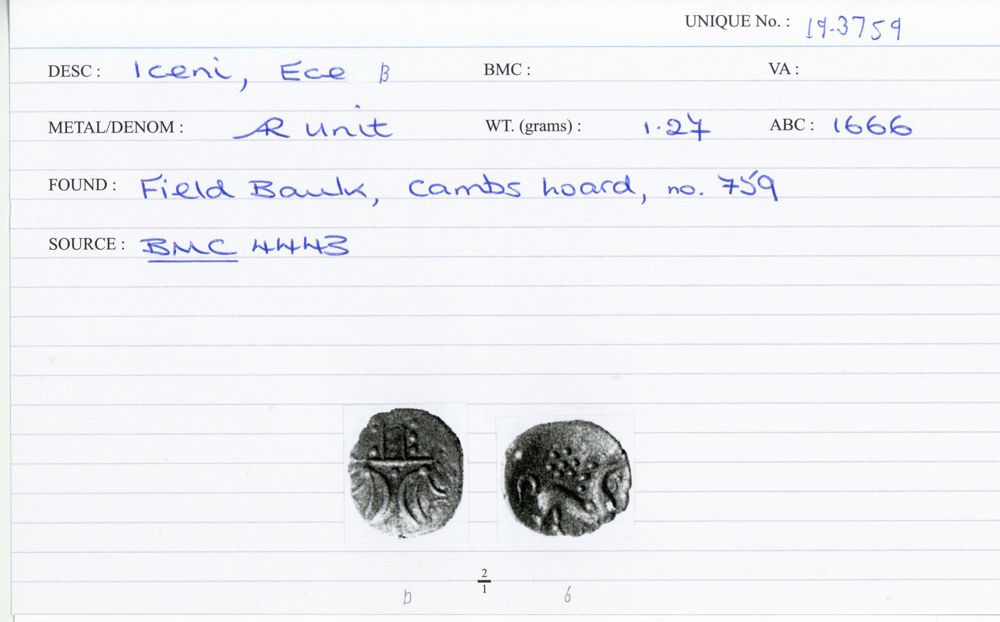 UNIQUE No. : 19-3759
DESC : Iceni, Ece B BMC : VA :
METAL/DENOM : AR Unit WT. (grams) : 1.27 ABC : 1666
FOUND : Field Baulk, Cambs hoard, no. 759
SOURCE : BMC 4443
2
1
D 6